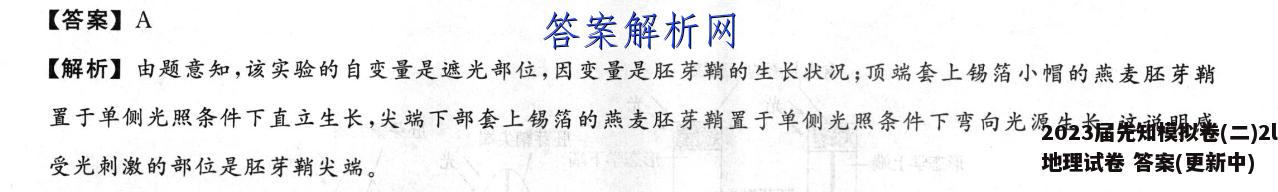 【答案】A
答案解析网
【解析】由题意知,该实验的自变量是遮光部位,因变量是胚芽鞘的生长状况;顶端套上锡箔小帽的燕麦胚芽鞘
置于单侧光照条件下直立生长,尖端下部套上锡箔的燕麦胚芽鞘置于单侧光照条件下弯向光源生长,这说明感
2023届先知模拟卷(二)2l
受光刺激的部位是胚芽鞘尖端。
地理试卷 答案(更新中)